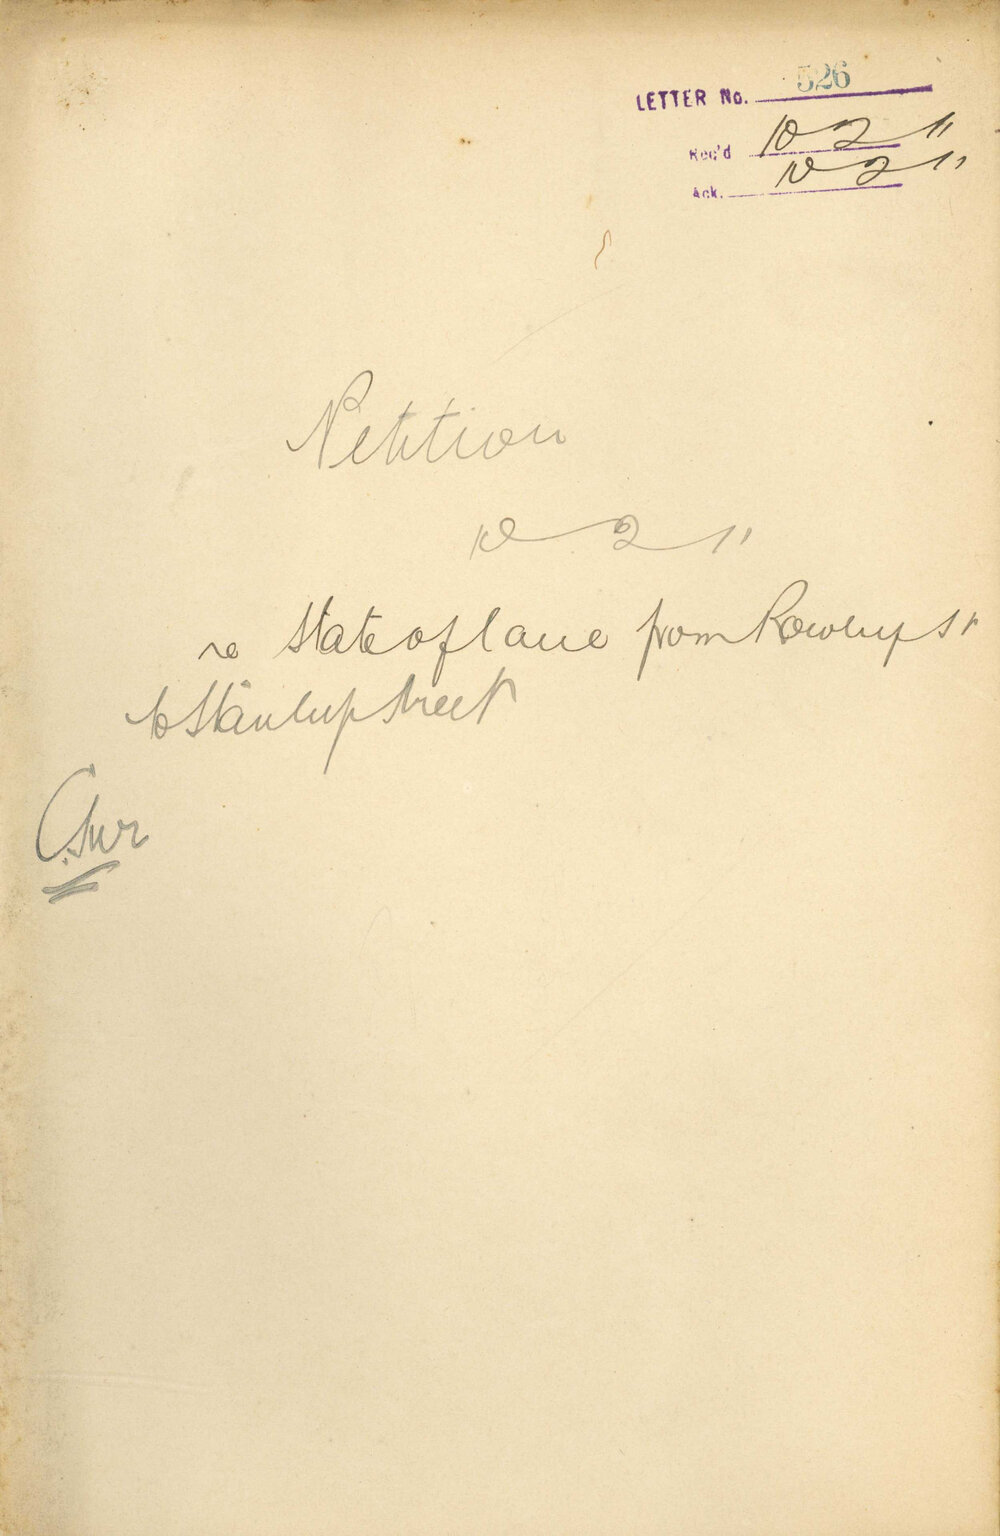 LETTER No. 526
Rec'd 10 2 11
Ack. 10 2 11
Petition
10 2 11
re State of lane from Rowley St
to Stanley Street